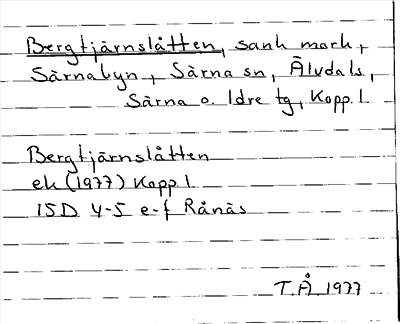 Bergtjärnslåtten, sank mark,
Särnabyn, Särna sn, Älvdals,
Särna o. Idre tg, Kopp. l.
Bergtjärnslåtten
ek (1977) Kopp l.
15D 4-5 e-f Rånäs
T.Å 1977